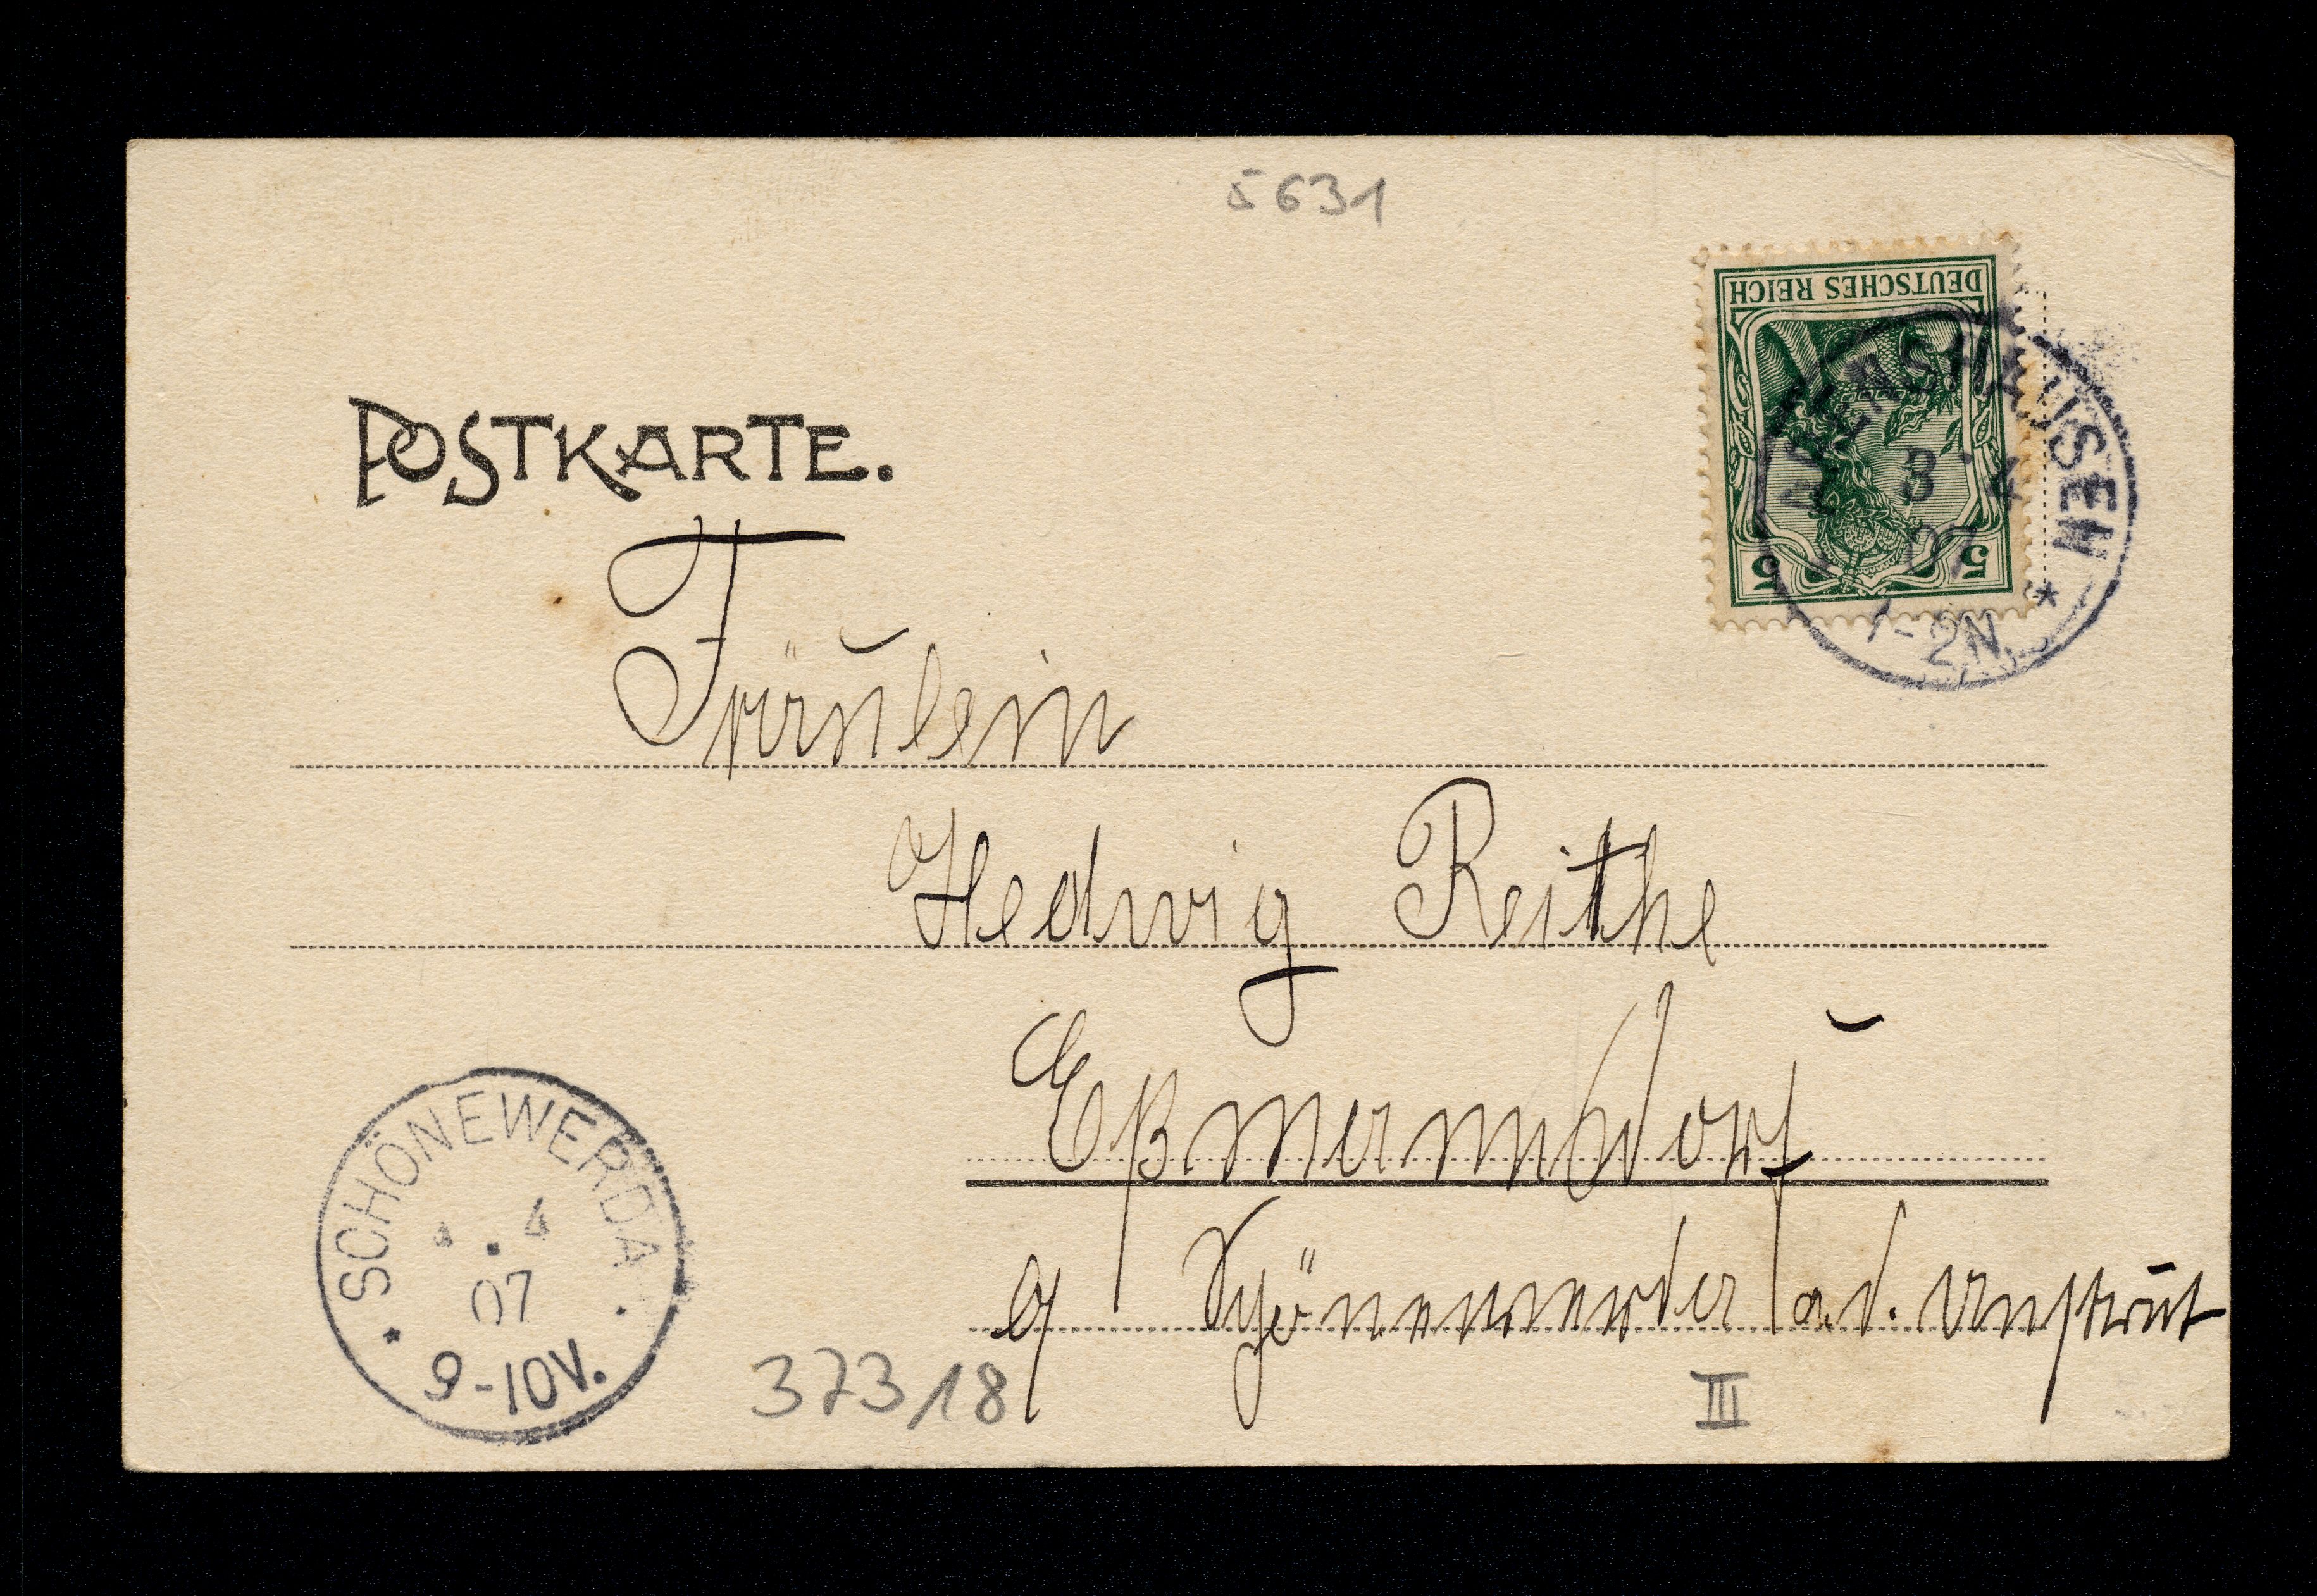 5631
DEUTSCHES REICH
5 5
3 4
07
1-2N.
POSTKARTE.
Fräulein
Hedwig Reithe
Eßmannsdorf
b/ Schönewerda a.d. Unstrut
SCHÖNEWERDA
4.4
07
9-10V.
373/18
III